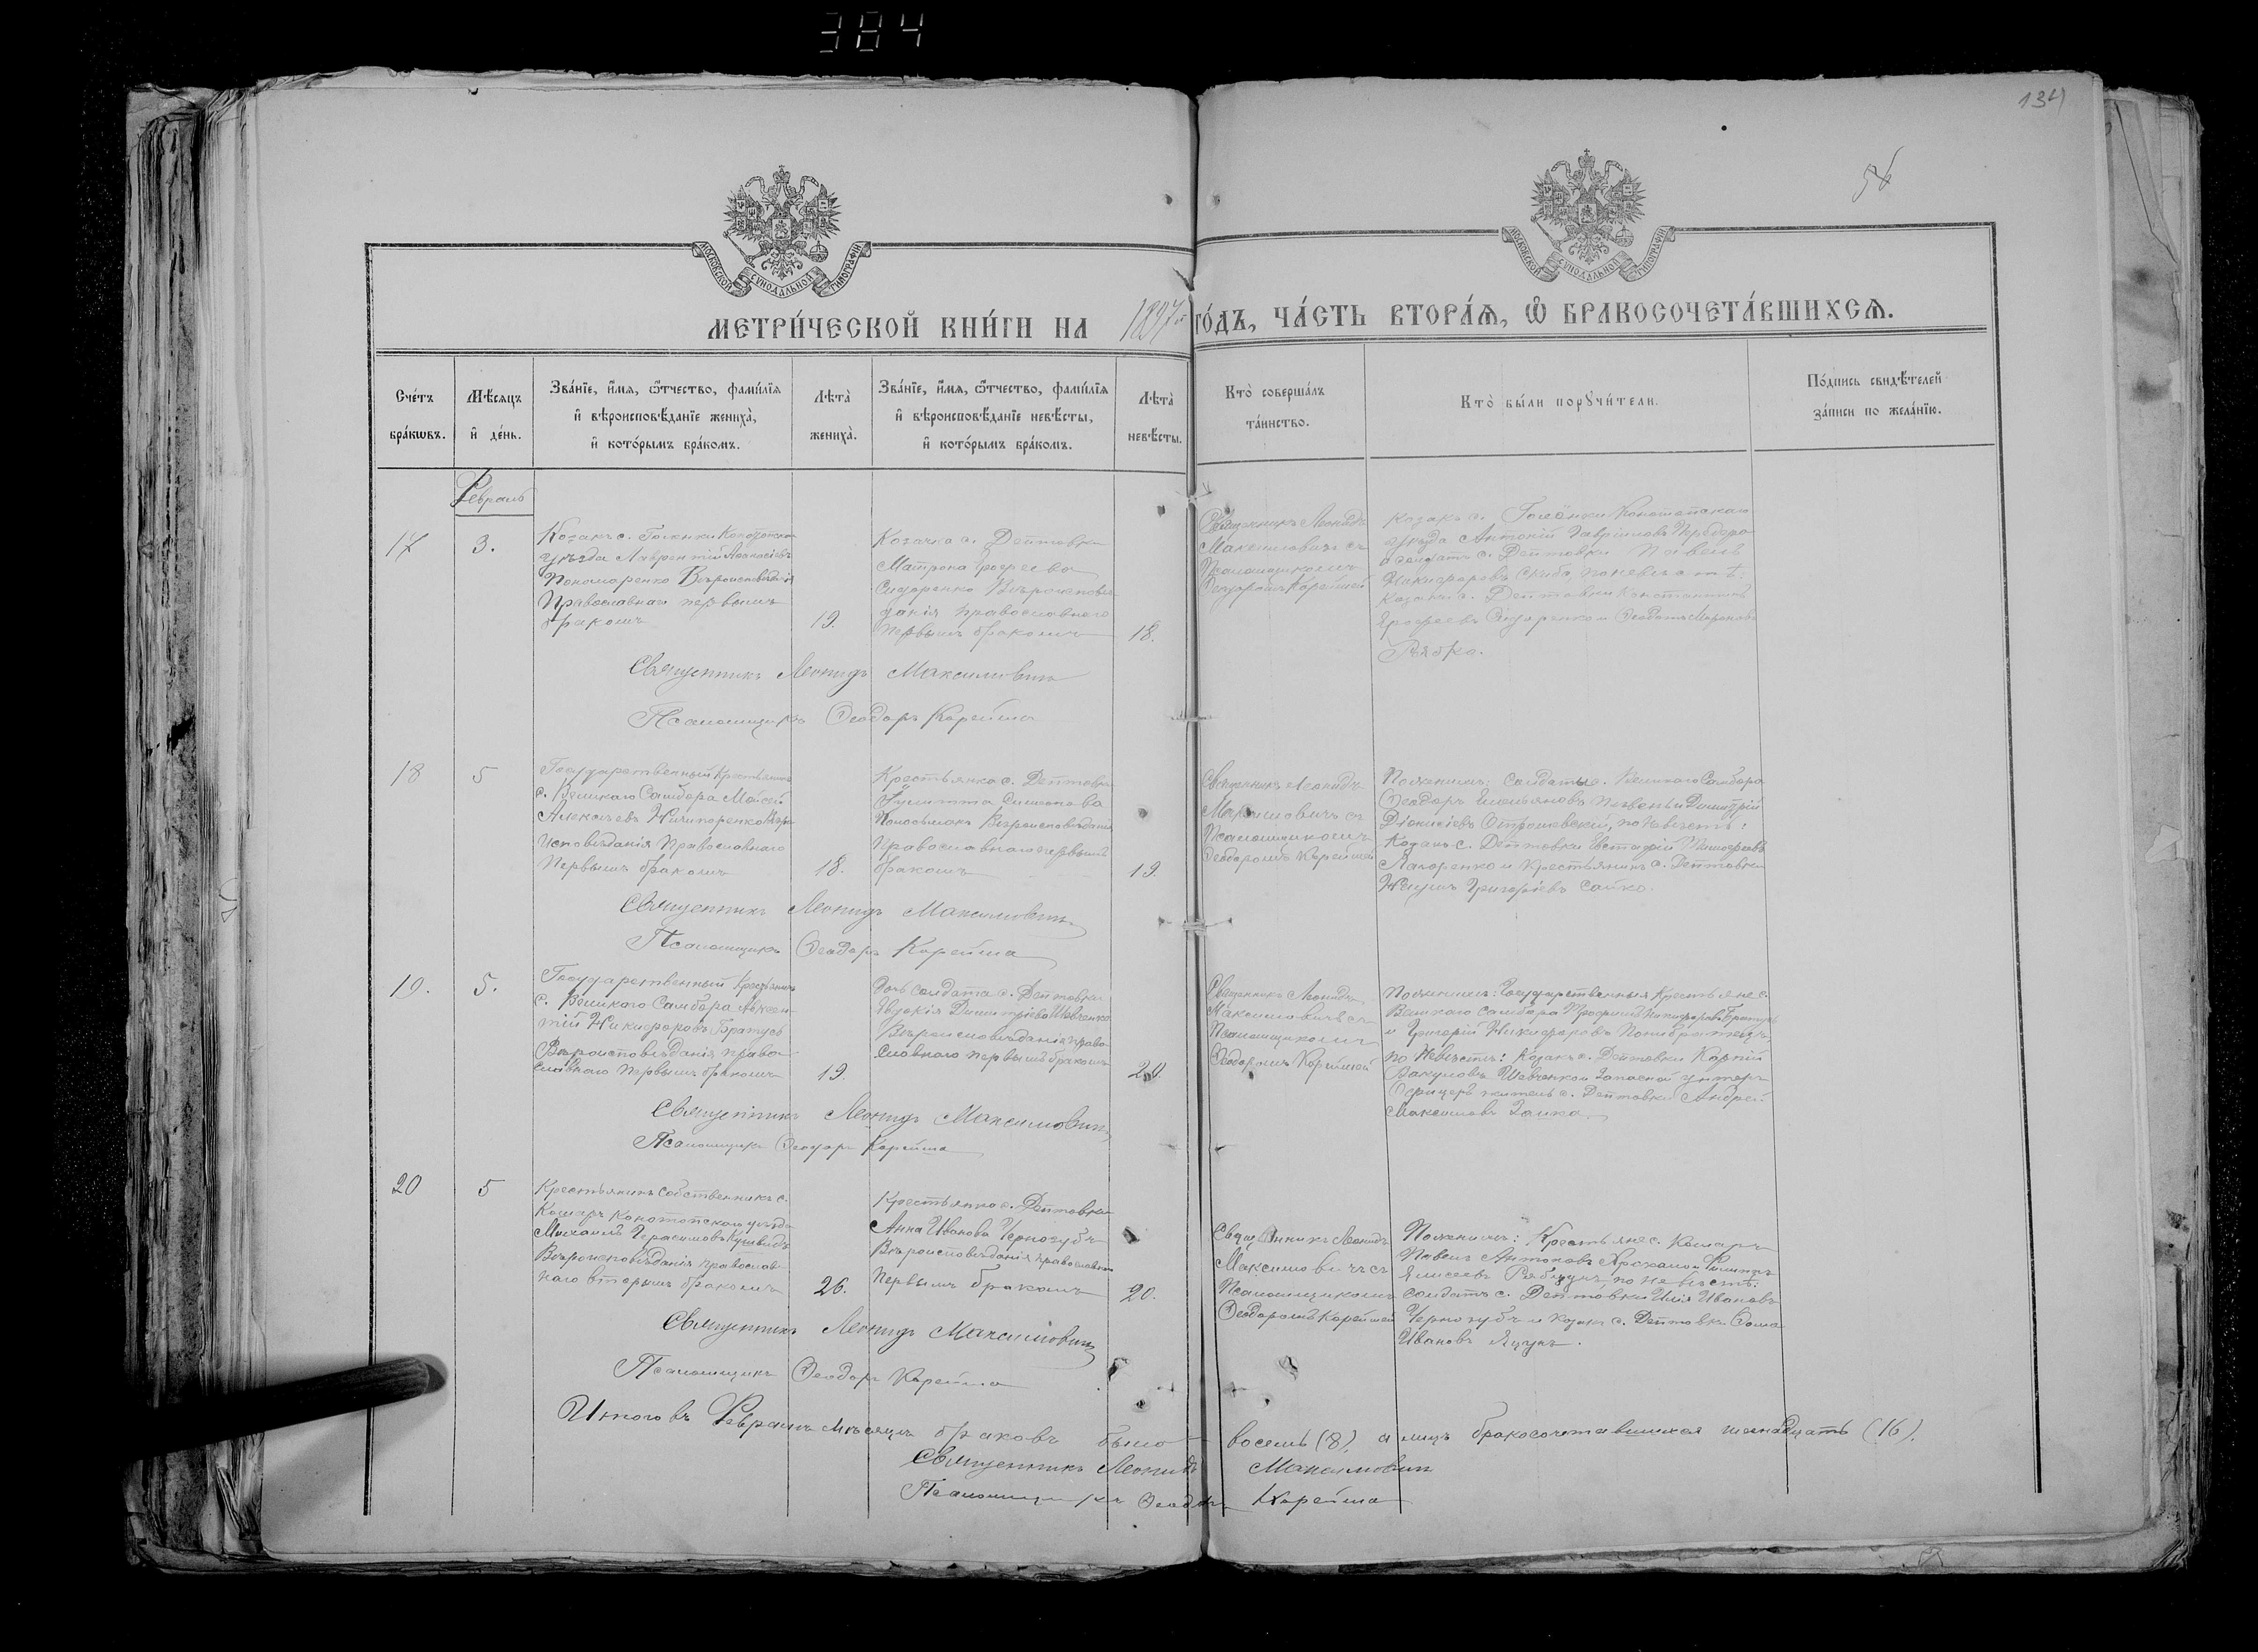 384
134
56
МОСКОВСКОЙ СУНОДАЛЬНОЙ ТИПОГРАФІИ
МОСКОВСКОЙ СУНОДАЛЬНОЙ ТИПОГРАФІИ
МЕТРИ́ЧЕСКОЙ КНИ́ГИ НА 1897й ГО́ДЪ, ЧА́СТЬ ВТОРА́Ѧ, Ѽ БРАКОСОЧЕТА́ВШИХСѦ.
Сче́тъ
бра́кѡвъ.
Мѣ́сѧцъ
и҆ де́нь.
Зва́нїе, и҆́мѧ, ѻ҆́тчество, фами́лїѧ
и҆ вѣроисповѣ́данїе жениха̀,
и҆ кото́рымъ бра́комъ.
Лѣта̀
жениха̀.
Зва́нїе, и҆́мѧ, ѻ҆́тчество, фами́лїѧ
и҆ вѣроисповѣ́данїе невѣ́сты,
и҆ кото́рымъ бра́комъ.
Лѣта̀
невѣ́сты.
Кто̀ соверша́лъ
та́инство.
Кто̀ бы́ли порꙋчи́тели.
По́дпись свидѣ́телей
за́писи по жела́нїю.
Февраль
17
3.
Козакъ с. Голенки Конотопскаго
уѣзда Лаврентій Аѳанасіевъ
Пономаренко Вѣроисповѣданія
Православнаго первымъ
бракомъ
19.
Козачка с. Дептовки
Матрона Ерофеева
Сидоренко Вѣроисповѣ-
данія православнаго
первымъ бракомъ
18.
Священникъ Леонидъ
Максимовичъ съ
Псаломщикомъ
Ѳеодоромъ Корейшей
Козакъ с. Голенки Конотопскаго
уѣзда Антоній Гавріиловъ
и солдатъ с. Дептовки Павелъ
Никифоровъ Скиба, по невѣстѣ:
Козаки с. Дептовки Константинъ
Ерофеевъ Сидоренко и Ѳеодотъ
Рябка.
Священникъ Леонидъ Максимовичъ
Псаломщикъ Ѳеодоръ Корейша
18
5
Государственный Крестьянинъ
с. Великаго Самбора Моисей
Алексѣевъ Ничипоренко Вѣро-
исповѣданія Православнаго
Первымъ бракомъ
18.
Крестьянка с. Дептовки
Симонова
Вѣроисповѣданія
Православнаго первымъ
бракомъ
19.
Священникъ Леонидъ
Максимовичъ съ
Псаломщикомъ
Ѳеодоромъ Корейшей
По женихѣ: Солдаты с. Великаго Самбора
Ѳеодоръ Емельяновъ и Димитрій
Діонисіевъ по Невѣстѣ:
Козакъ с. Дептовки Евстафій
Лазоренко и Крестьянинъ с. Дептовки
Григоріевъ Сайко.
Священникъ Леонидъ Максимовичъ
Псаломщикъ Ѳеодоръ Корейша
19.
5.
Государственный Крестьянинъ
с. Великаго Самбора Авксен-
тій Никифоровъ Братусь
Вѣроисповѣданія право-
славнаго Первымъ бракомъ
19.
Дочь солдата с. Дептовки
Евдокія Димитріева Шевченко
Вѣроисповѣданія право-
славнаго первымъ бракомъ
20.
Священникъ Леонидъ
Максимовичъ съ
Псаломщикомъ
Ѳеодоромъ Корейшей
По женихѣ: Государственныя Крестьяне с.
Великаго Самбора Трофимъ Никифоровъ Братусь
и Григорій Никифоровъ
по Невѣстѣ: Козакъ с. Дептовки Карпій
Вакуловъ Шевченко и Запасной унтеръ
Офицеръ житель с. Дептовки Андрей
Максимовъ Заика.
Священникъ Леонидъ Максимовичъ
Псаломщикъ Ѳеодоръ Корейша
20
5
Крестьянинъ Собственникъ с.
Кошаръ Конотопскаго уѣзда
Михаилъ Герасимовъ
Вѣроисповѣданія православ-
наго вторымъ бракомъ
26.
Крестьянка с. Дептовки
Анна Иванова Чернозубъ
Вѣроисповѣданія православнаго
Первымъ бракомъ
20.
Священникъ Леонидъ
Максимовичъ съ
Псаломщикомъ
Ѳеодоромъ Корейшей
По женихѣ: Крестьяне с. Кошаръ
Павелъ Антоновъ и Филиппъ
Елисеевъ по невѣстѣ:
солдатъ с. Дептовки Илія Ивановъ
Чернозубъ и козакъ с. Дептовки Ѳома
Ивановъ Яцунъ.
Священникъ Леонидъ Максимовичъ
Псаломщикъ Ѳеодоръ Корейша
Итого въ Февралѣ мѣсяцѣ браковъ было восемь (8), а лицъ бракосочетавшихся шестнадцать (16).
Священникъ Леонидъ Максимовичъ
Псаломщикъ Ѳеодоръ Корейша